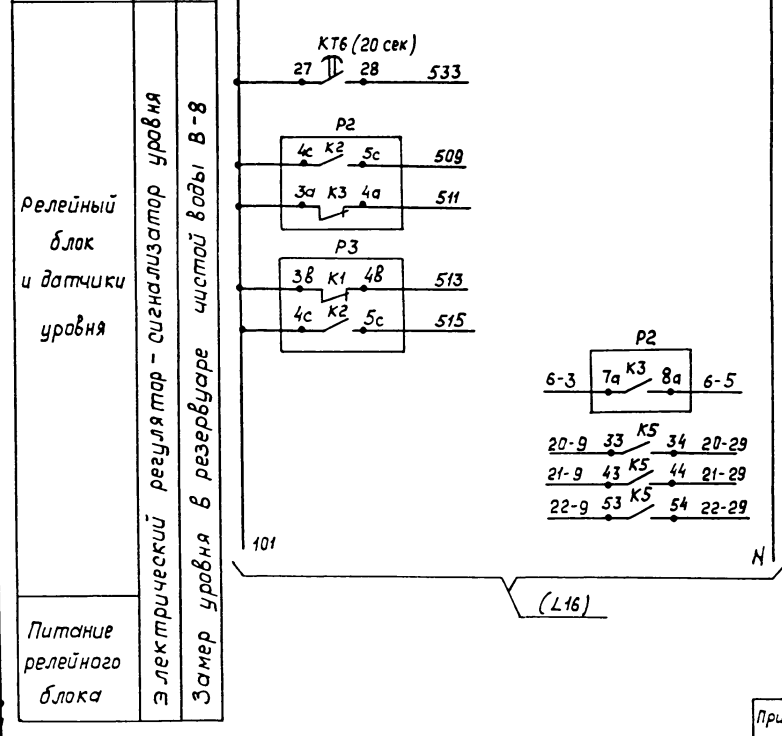 Релейный
блок
и датчики
уровня
Питание
релейного
блока
Электрический регулятор-сигнализатор уровня
Замер уровня в резервуаре чистой воды В-8
КТ6 (20 сек)
27 28 533
Р2
4с К2 5с 509
3а К3 4а 511
Р3
3в К1 4в 513
4с К2 5с 515
Р2
6-3 7а К3 8а 6-5
20-9 33 К5 34 20-29
21-9 43 К5 44 21-29
22-9 53 К5 54 22-29
101
N
(L16)
При